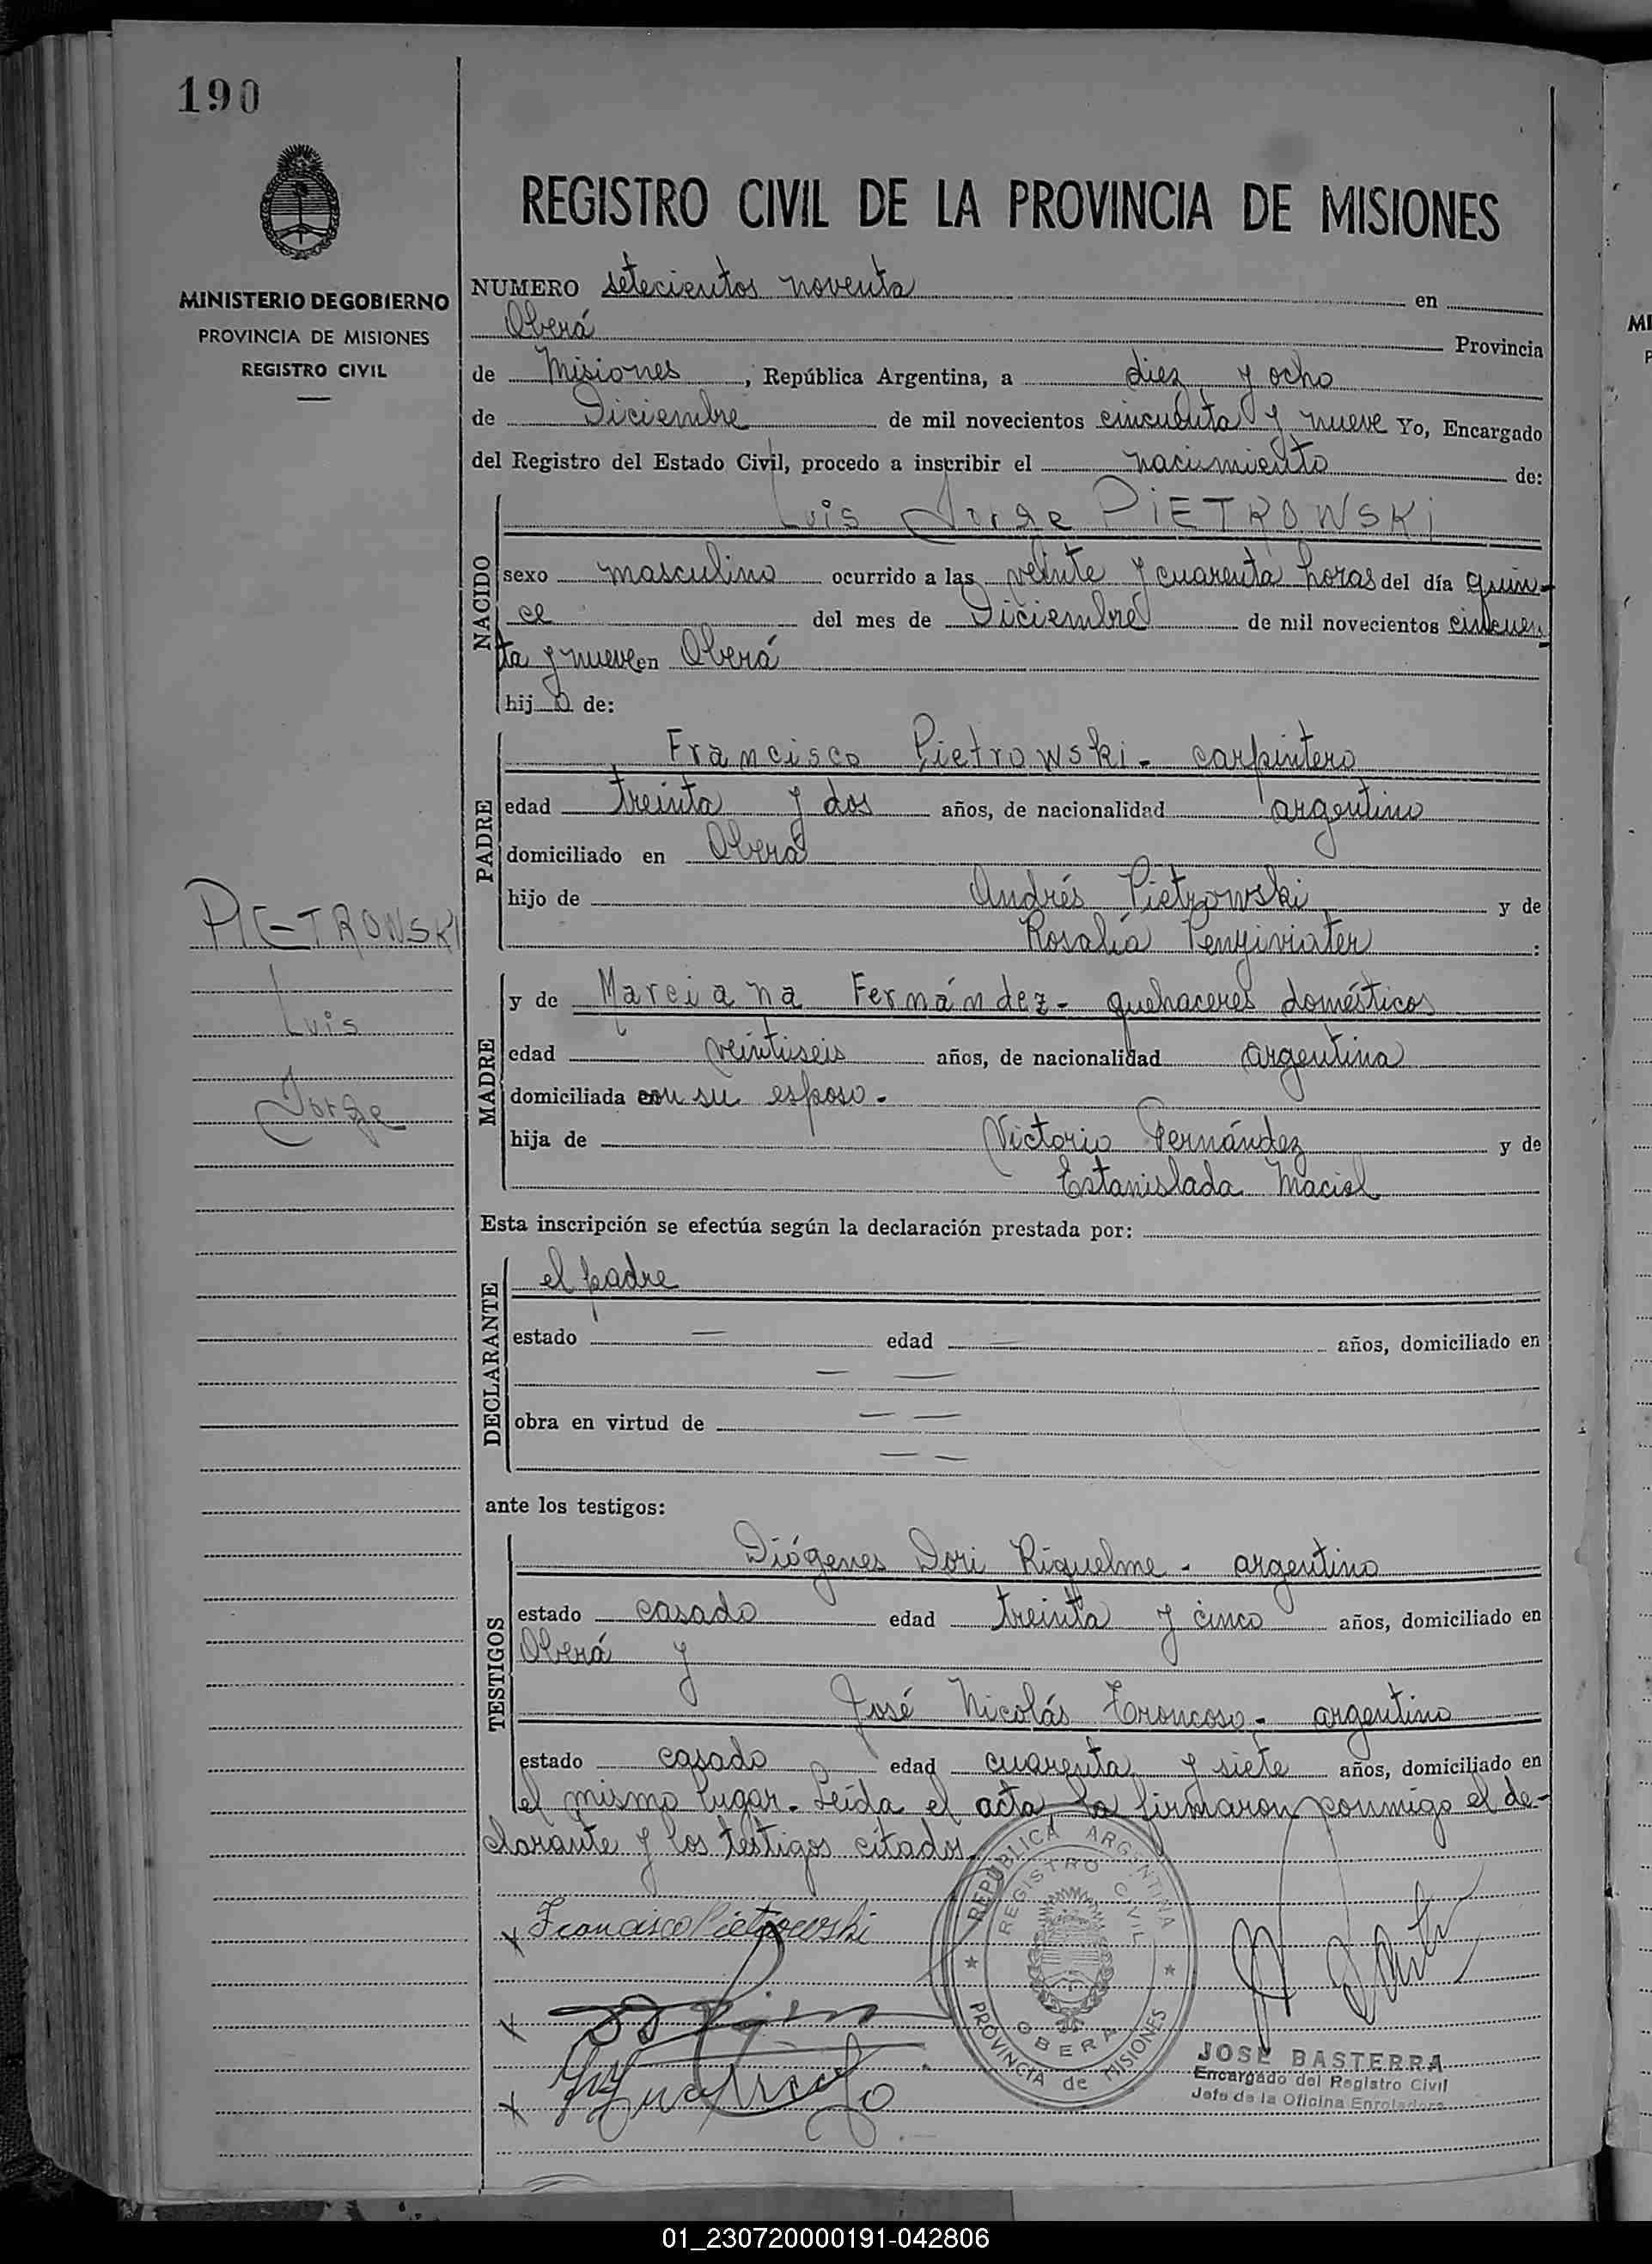 190
MINISTERIO DE GOBIERNO
PROVINCIA DE MISIONES
REGISTRO CIVIL
REGISTRO CIVIL DE LA PROVINCIA DE MISIONES
NUMERO setecientos noventa en
Oberá Provincia
de Misiones, República Argentina, a diez y ocho
de Diciembre de mil novecientos cincuenta y nueve Yo, Encargado
del Registro del Estado Civil, procedo a inscribir el nacimiento de:
NACIDO
Luis Jorge PIETROWSKI
sexo masculino ocurrido a las veinte y cuarenta horas del día quin-
ce del mes de Diciembre de mil novecientos cincuen
ta y nueve en Oberá
hijo de:
PADRE
Francisco Pietrowski - carpintero
edad treinta y dos años, de nacionalidad argentino
domiciliado en Oberá
hijo de Andrés Pietrowski y de
Rosalía :
PIETROWSKI
Luis
Jorge
MADRE
y de Marciana Fernández - quehaceres domésticos
edad veintiseis años, de nacionalidad argentina
domiciliada con su esposo.
hija de Victorio Fernández y de
Estanislada Maciel
Esta inscripción se efectúa según la declaración prestada por:
DECLARANTE
el padre
estado — edad — años, domiciliado en
— —
obra en virtud de — —
— —
ante los testigos:
TESTIGOS
Diógenes Dori Riquelme - argentino
estado casado edad treinta y cinco años, domiciliado en
Oberá y
José Nicolás Troncoso - argentino
estado casado edad cuarenta y siete años, domiciliado en
el mismo lugar. Leída el acta, la firmaron conmigo el de-
clarante y los testigos citados.
x Francisco Pietrowski
x
x
REPUBLICA ARGENTINA
REGISTRO CIVIL
OBERA
PROVINCIA de MISIONES
JOSE BASTERRA
Encargado del Registro Civil
Jefe de la Oficina Enroladora
01_230720000191-042806